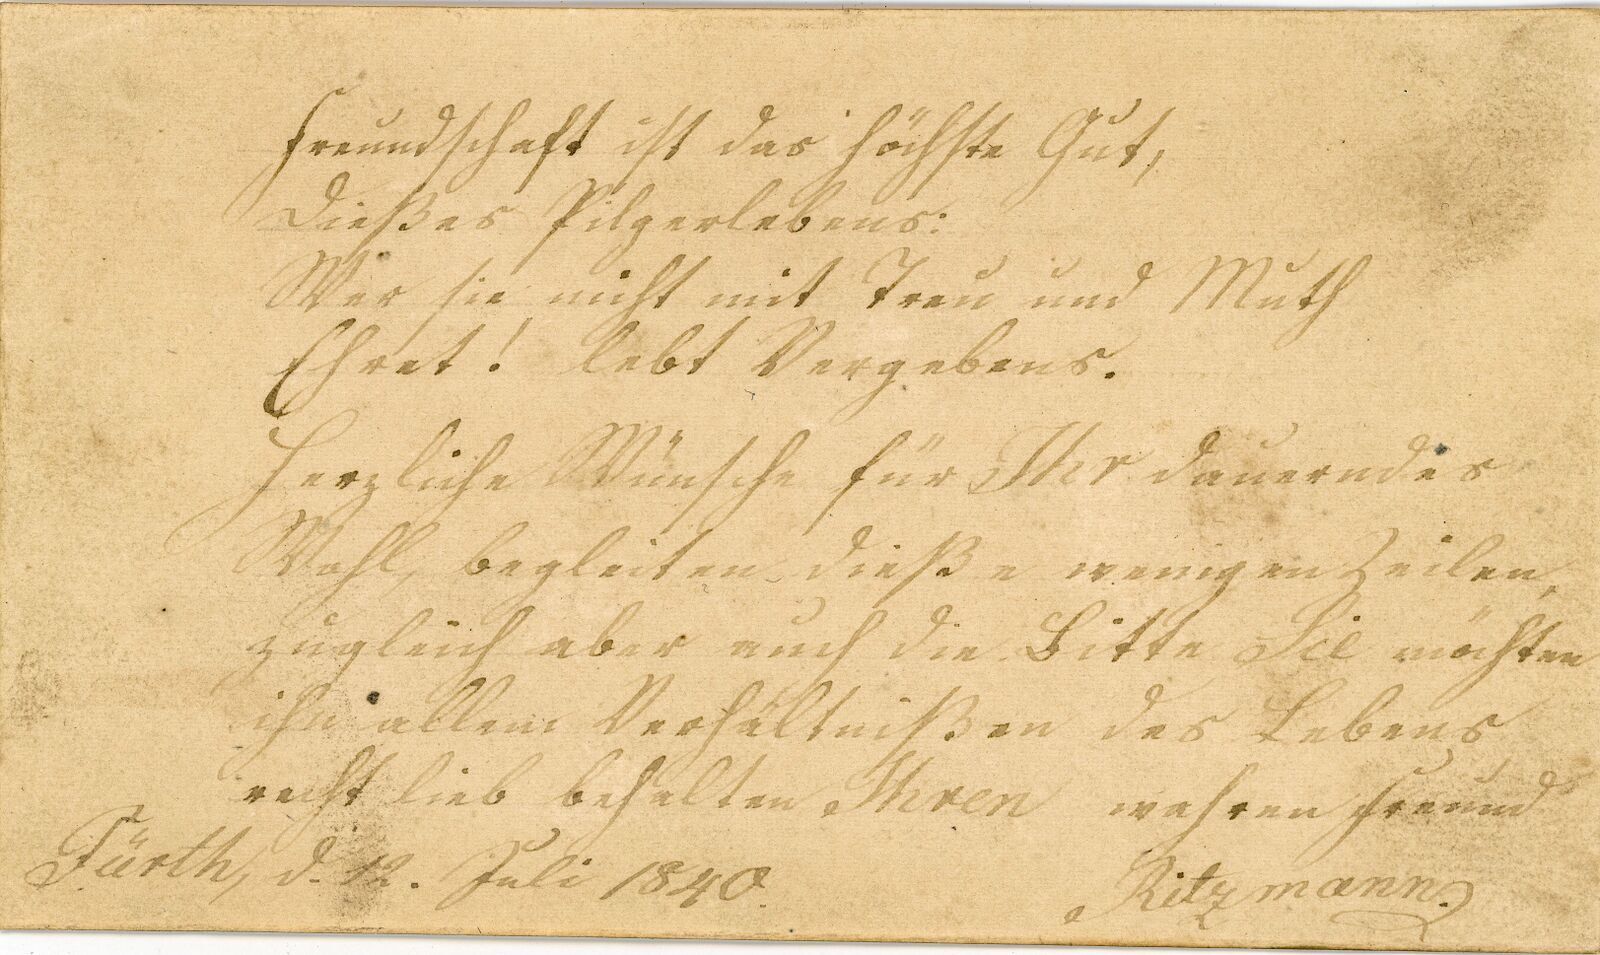 Freundschaft ist das höchste Gut,
Dießes Pilgerlebens:
Wer sie nicht mit Treu und Muth
Ehret! lebt Vergebens.
Herzliche Wünsche für Ihr dauerndes
Wohl, begleiten dieße wenigen Zeilen,
zugleich aber auch die Bitte Sie möchten
ihn allem Verhältnißen des Lebens
recht lieb behalten Ihren wahren Freund
Fürth, d. 12. Juli 1840. Ritzmann.